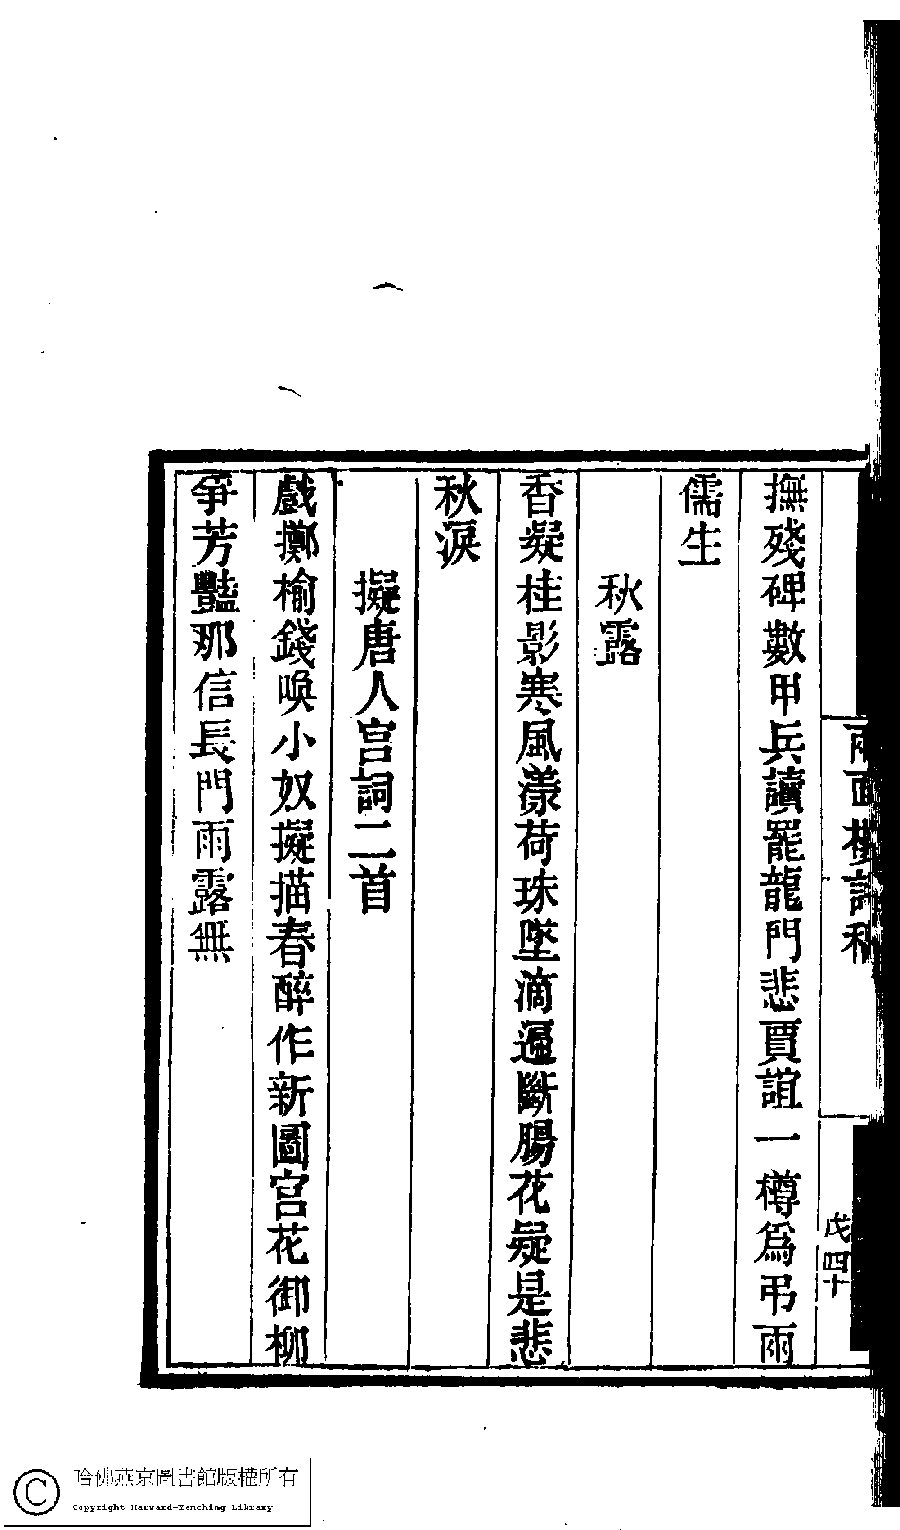 撫殘碑數甲兵讀罷龍門悲賈誼一樽爲弔雨
儒生
秋露
香凝桂影寒風漾荷珠墜滴遍斷腸花疑是悲
秋淚
擬唐人宮詞二首
戲擲榆錢喚小奴擬描春醉作新圖宮花御柳
爭芳豔那信長門雨露無
戊四十
哈佛燕京圖書館版權所有
Copyright Harvard-Yenching Library